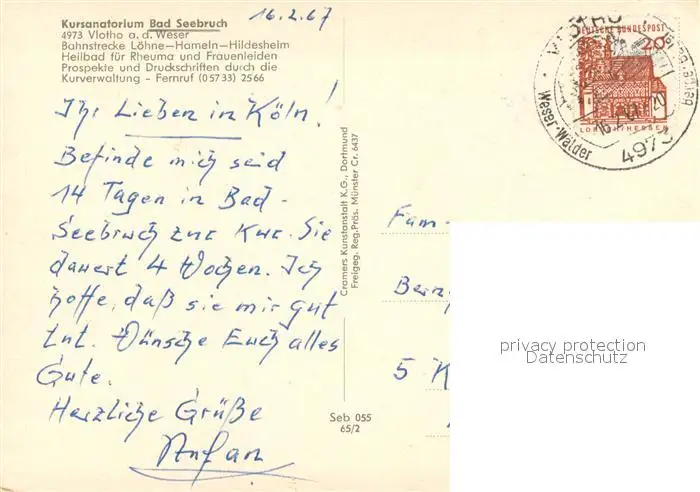 16.2.67
Kursanatorium Bad Seebruch
4973 Vlotho a. d. Weser
Bahnstrecke Löhne–Hameln–Hildesheim
Heilbad für Rheuma und Frauenleiden
Prospekte und Druckschriften durch die
Kurverwaltung - Fernruf (05733) 2566
Ihr Lieben in Köln!
Befinde mich seid
14 Tagen in Bad-
Seebruch zur Kur. Sie
dauert 4 Wochen. Ich
hoffe, daß sie mir gut
tut. Wünsche Euch alles
Gute.
Herzliche Grüße
Cramers Kunstanstalt K.G., Dortmund
Freigeg. Reg.Präs. Münster Cr. 6437
Seb 055
65/2
DEUTSCHE BUNDESPOST
20
LORSCH/HESSEN
VLOTHO
Weser-Wälder
4973
Fam-
5 K
privacy protection
Datenschutz